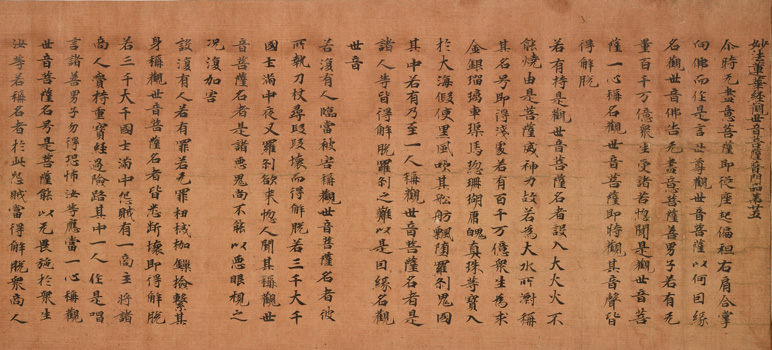 妙法蓮華經觀世音菩薩普門品苐廿五
尒時无盡意菩薩即從座起偏袒右肩合掌
向佛而作是言世尊觀世音菩薩以何因緣
名觀世音佛告无盡意菩薩善男子若有无
量百千万億衆生受諸苦惱聞是觀世音菩
薩一心稱名觀世音菩薩即時觀其音聲皆
得解脫
若有持是觀世音菩薩名者設入大火火不
能燒由是菩薩威神力故若為大水所漂稱
其名号即得淺處若有百千万億衆生為求
金銀瑠璃車璖馬瑙珊瑚虎魄真珠等寶入
於大海假使黑風吹其舩舫飄墮羅刹鬼國
其中若有乃至一人稱觀世音菩薩名者是
諸人等皆得解脫羅刹之難以是因緣名觀
世音
若復有人臨當被害稱觀世音菩薩名者彼
所執刀杖尋段段壞而得解脫若三千大千
國土滿中夜叉羅刹欲來惱人聞其稱觀世
音菩薩名者是諸惡鬼尚不能以惡眼視之
况復加害
設復有人若有罪若无罪杻械枷鏁撿繫其
身稱觀世音菩薩名者皆悉斷壞即得解脫
若三千大千國土滿中怨賊有一商主將諸
商人賷持重寶經過險路其中一人作是唱
言諸善男子勿得恐怖汝等應當一心稱觀
世音菩薩名号是菩薩能以无畏施於衆生
汝等若稱名者於此怨賊當得解脫衆商人